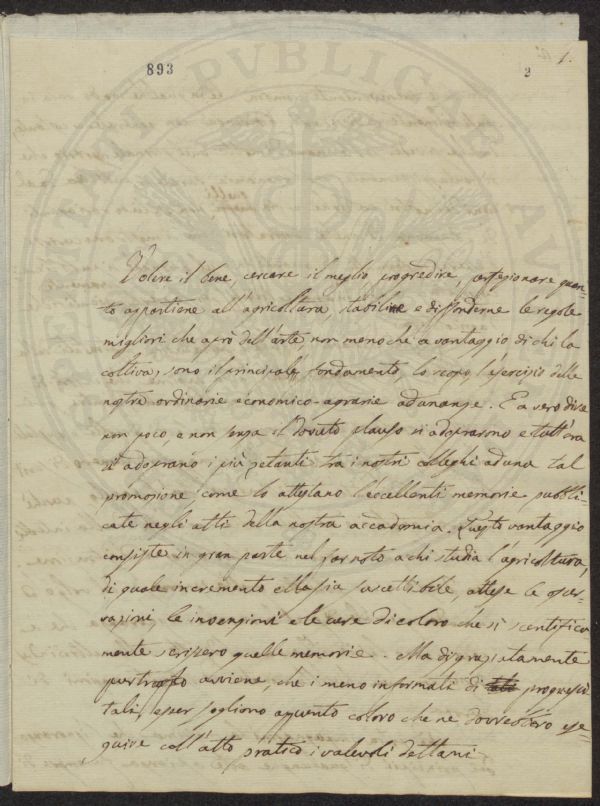 893
2
1.
Volere il bene, cercare il meglio progredire, perfezionare quan=
to appartiene all'agricoltura, stabilirne e diffonderne le regole
migliori che a prò dell'arte, non meno che a vantaggio di chi la
coltiva, sono il principale fondamento, lo scopo, l'esercizio delle
nostre ordinarie economico-agrarie adunanze. E a vero dire
non poco, e non senza il dovuto plauso si adoprarono e tutt'ora
si adoprano i più zelanti tra i nostri colleghi ad una tal
promozione come lo attestano l'eccellenti memorie pubbli=
cate negli atti della nostra accademia. Questo vantaggio
consiste in gran parte nel far noto a chi studia l'agricoltura,
di quale incremento ella sia suscettibile, attese le osser=
vazioni le invenzioni e le cure di coloro che sì scentifica
mente scrissero quelle memorie. Ma disgraziatamente
purtroppo avviene, che i meno informati di progressi
tali, esser sogliono appunto coloro che ne dovrebbero ese=
guire coll'atto pratico i valevoli dettami